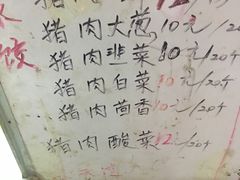 水饺
猪肉大葱 10元/20个
猪肉韭菜 10元/20个
猪肉白菜 10元/20个
猪肉茴香 10元/20个
猪肉酸菜 12元/20个